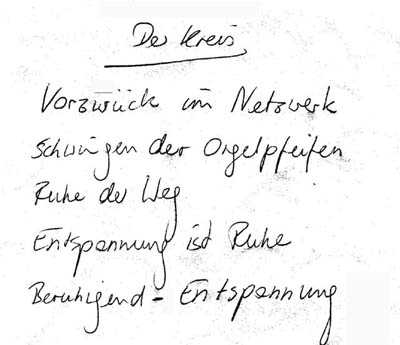 Der Kreis
Vorzurück im Netzwerk
Schwingen der Orgelpfeifen
Ruhe der Weg
Entspannung ist Ruhe
Beruhigend - Entspannung